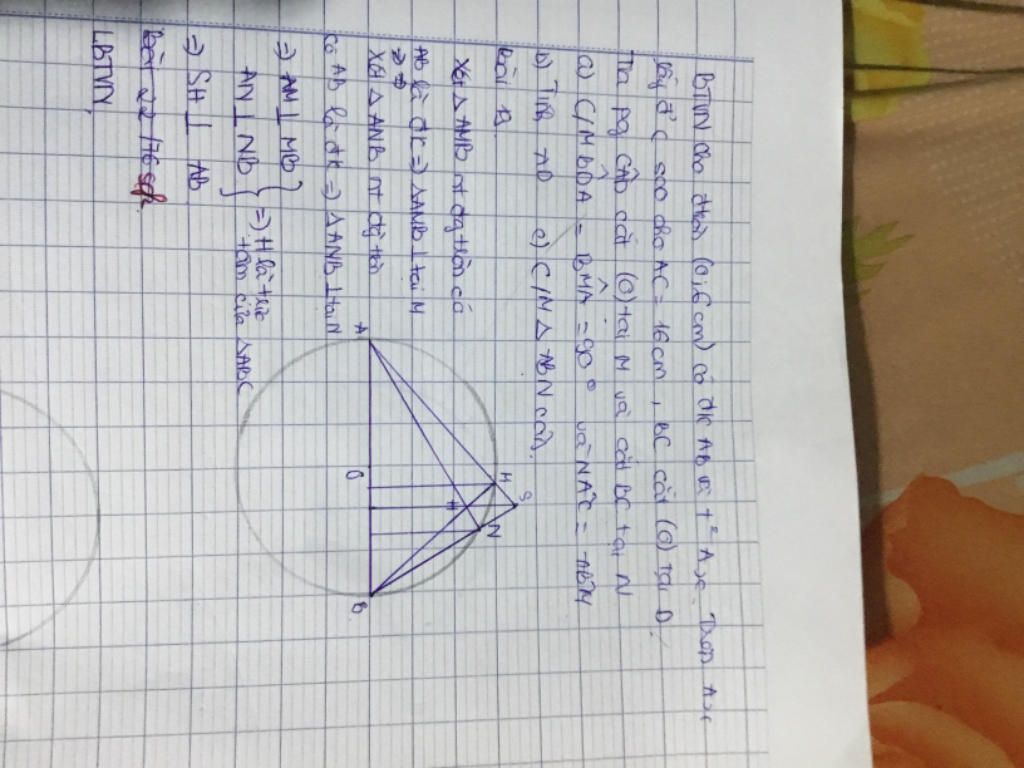 BTVN cho đtròn (O; 6cm) có đk AB và t² Ax. Trên Ax
lấy đ' C sao cho AC = 16cm, BC cắt (O) tại D.
Tia pg CÂD cắt (O) tại M và cắt BC tại N
a) C/M BD̂A = BM̂A = 90° và NÂC = AB̂M
b) Tính AD c) C/M △ ABN cân.
Bài
Xét △ AMB nt đg tròn có
AB là đk => △AMB ⊥ tại M
Xét △ ANB nt đg tròn
có AB là đk => △ANB ⊥ tại N
=> AM ⊥ MB
AN ⊥ NB } => H là trực
tâm của △ABC
=> SH ⊥ AB
Bài 22 176 sgk
LBTVN
A
O
B
M
S
H
N